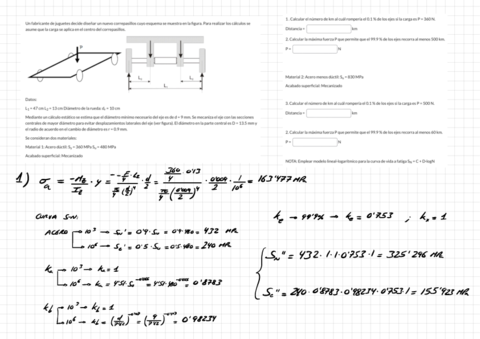 Un fabricante de juguetes decide diseñar un nuevo correpasillos cuyo esquema se muestra en la figura. Para realizar los cálculos se
asume que la carga se aplica en el centro del correpasillos.
P
L₂
L₂
L₁
Datos:
L₁ = 47 cm L₂ = 13 cm Diámetro de la rueda, dᵣ = 10 cm
Mediante un cálculo estático se estima que el diámetro mínimo necesario del eje es de d = 9 mm. Se mecaniza el eje con las secciones
centrales de mayor diámetro para evitar desplazamientos laterales del eje (ver figura). El diámetro en la parte central es D = 13.5 mm y
el radio de acuerdo en el cambio de diámetro es r = 0.9 mm.
Se consideran dos materiales:
Material 1: Acero dúctil: Sᵧ = 360 MPa Sᵤ = 480 MPa
Acabado superficial: Mecanizado
1. Calcular el número de km al cuál rompería el 0.1 % de los ejes si la carga es P = 360 N.
Distancia = km
2. Calcular la máxima fuerza P que permite que el 99.9 % de los ejes recorra al menos 500 km.
P = N
Material 2: Acero menos dúctil: Sᵤ = 830 MPa
Acabado superficial: Mecanizado
3. Calcular el número de km al cuál rompería el 0.1 % de los ejes si la carga es P = 500 N.
Distancia = km
2. Calcular la máxima fuerza P que permite que el 99.9 % de los ejes recorra al menos 60 km.
P = N
NOTA: Emplear modelo lineal logarítmico para la curva de vida a fatiga
1)
CURVA S.N.
ACERO
10³ → Sₙ' = 0'9·Sᵤ = 0'9·480 = 432 MPa
10⁶ → Sₑ' = 0'5·Sᵤ = 0'5·480 = 240 MPa
10³ → k = 1
10⁶ →
= 0'8783
10³ → k = 1
10⁶ →
= 0'98234
→ 99'9% → = 0'753 ; = 1
= 432·1·1·0'753·1 = 325'296 MPa
= 240·0'8783·0'98234·0'753·1 = 155'923 MPa